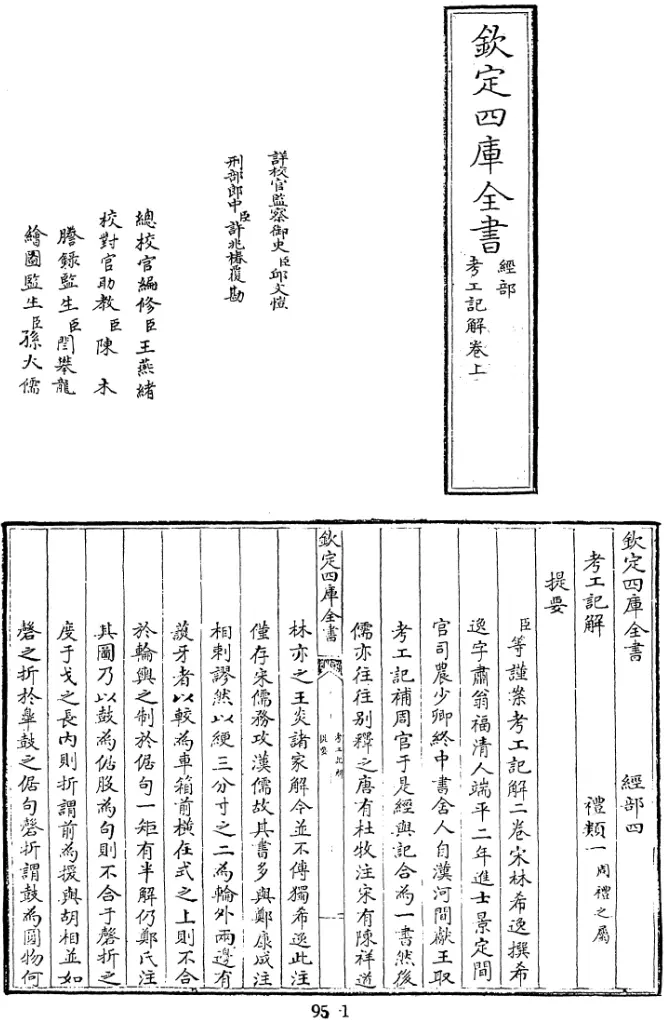 欽定四庫全書
經部
考工記解卷上
詳校官監察御史臣邱文愷
刑部郎中臣許兆椿覆勘
總校官編修臣王燕緒
校對官助教臣陳木
謄錄監生臣閆攀龍
繪圖監生臣孫大儒
欽定四庫全書 經部四
考工記解 禮類一 周禮之屬
提要
臣等謹案考工記解二卷宋林希逸撰希
逸字肅翁福清人端平二年進士景定間
官司農少卿終中書舍人自漢河間獻王取
考工記補周官于是經與記合為一書然後
儒亦往往別釋之唐有杜牧注宋有陳祥道
欽定四庫全書
考工記解
提要
一
林亦之王炎諸家解今並不傳獨希逸此注
僅存宋儒務攻漢儒故其書多與鄭康成注
相刺謬然以綆三分寸之二為輪外兩邊有
護牙者以較為車箱前橫在式之上則不合
於輪輿之制於倨句一矩有半解仍鄭氏注
其圖乃以鼓為倨股為句則不合于磬折之
度于戈之長內則折謂前為援與胡相並如
磬之折於臯鼓之倨句磬折謂鼓為圓物何
95-1